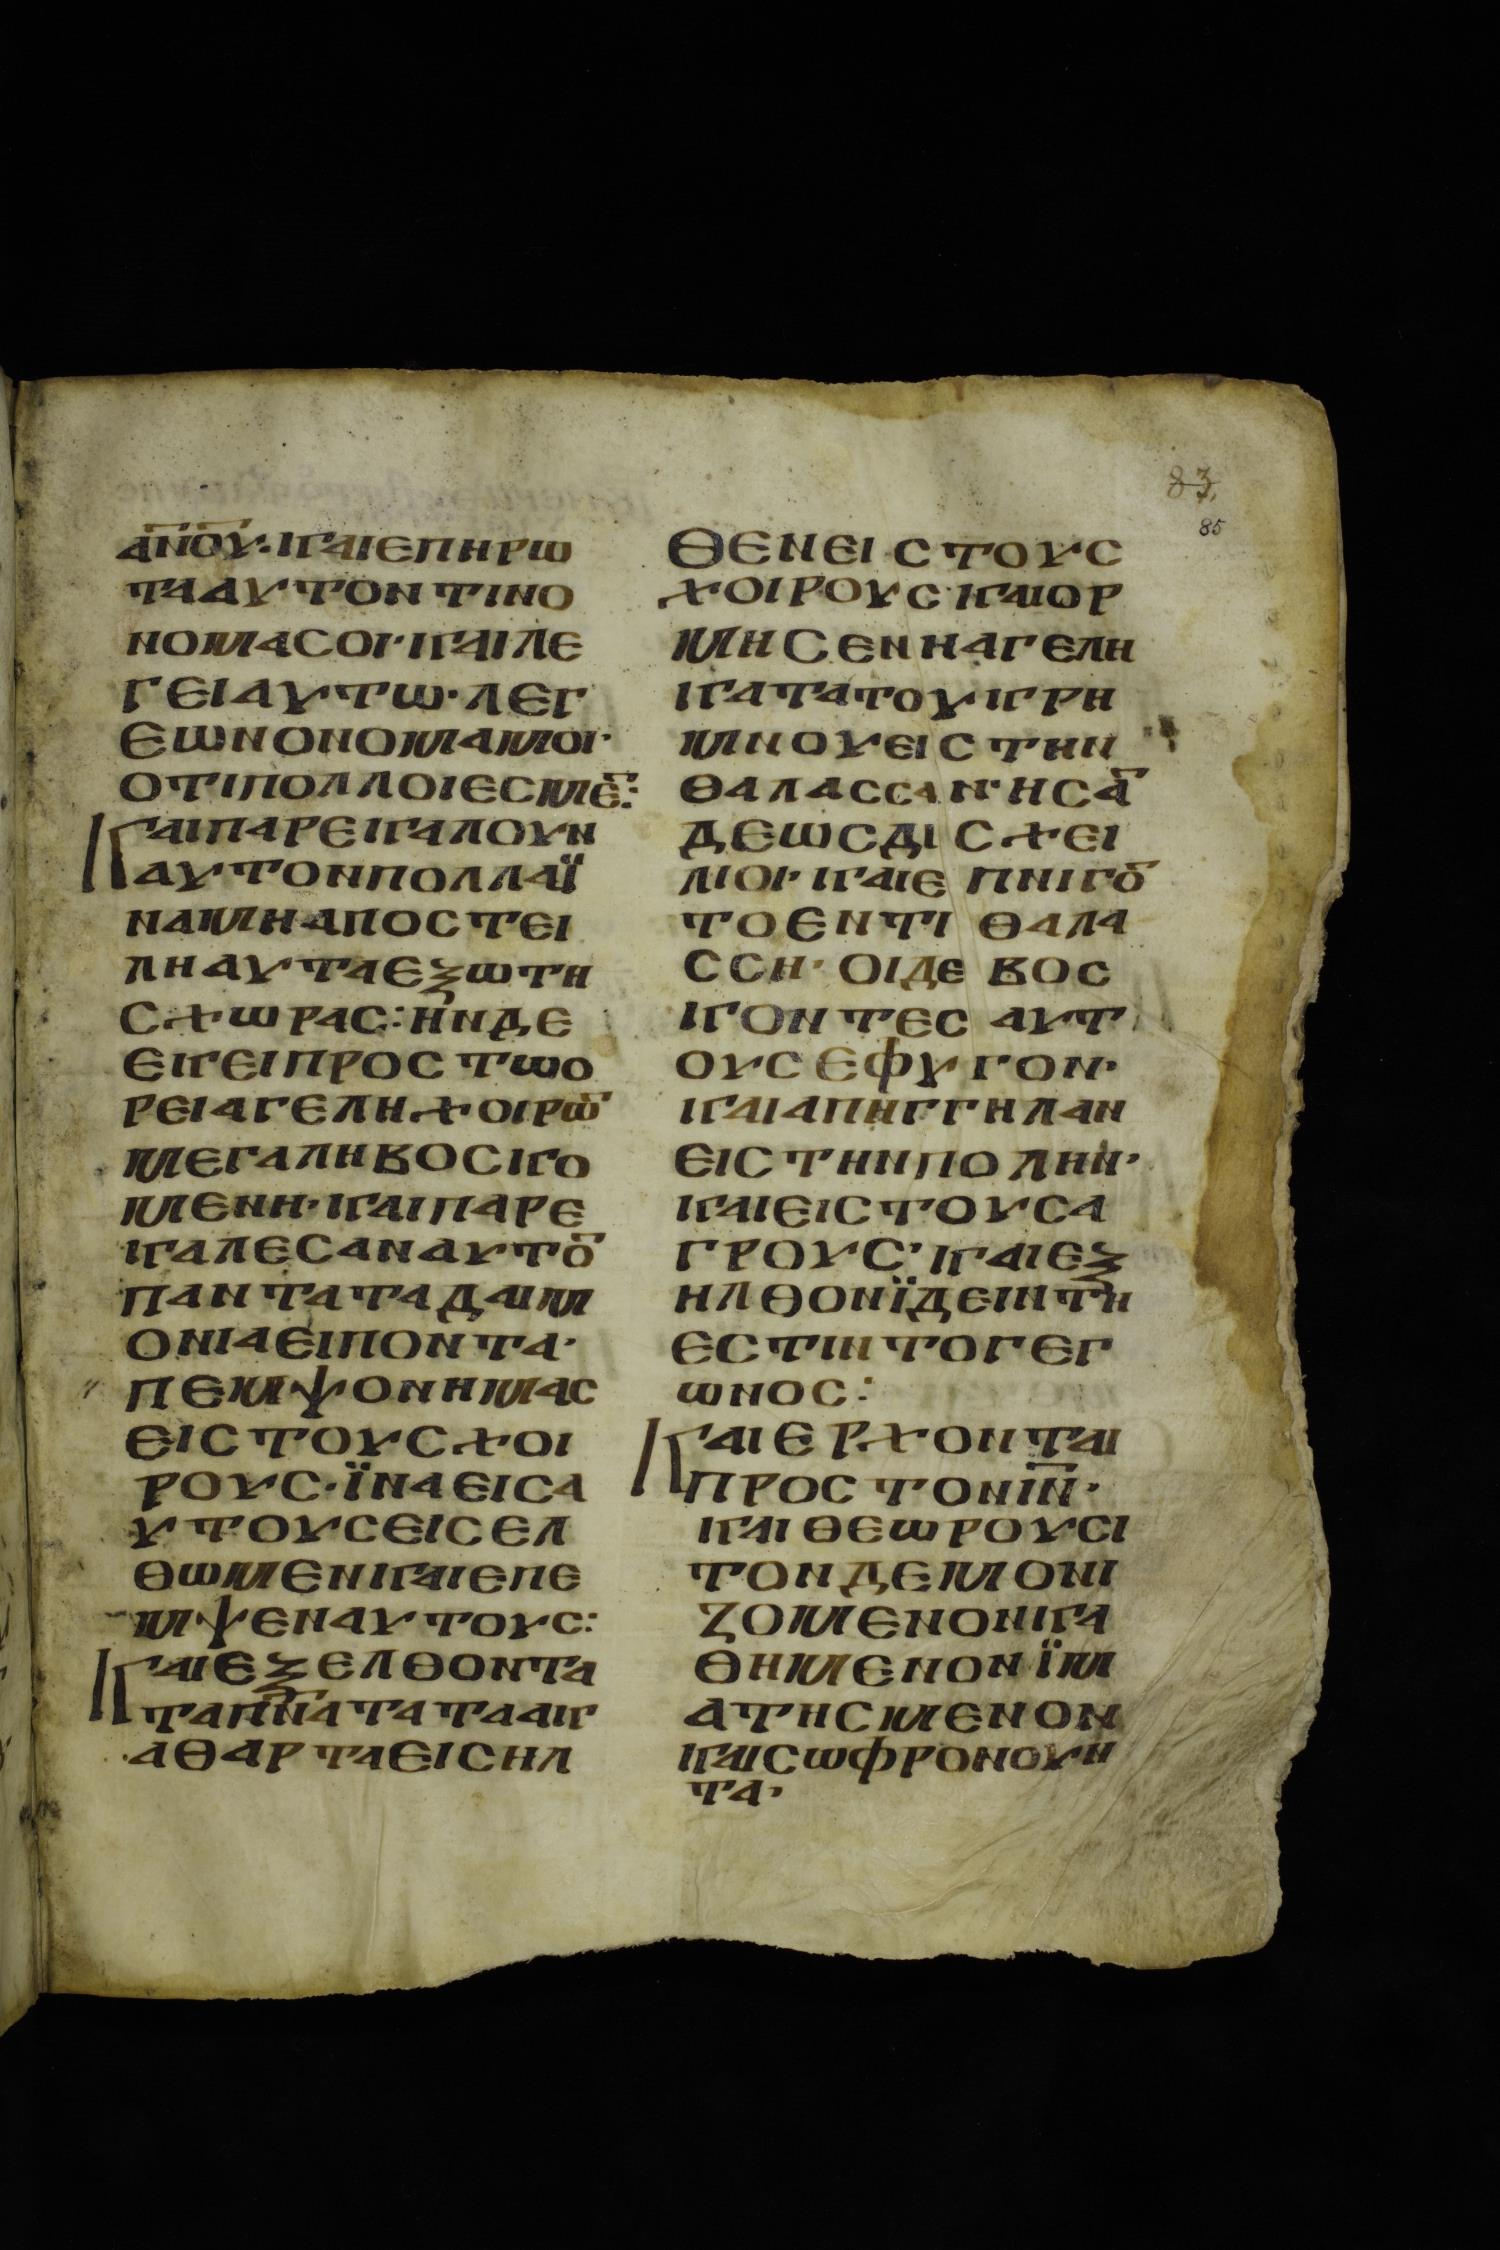 83.
85
ΑΝ̅Ο̅Υ̅· ΚΑΙ ΕΠΗΡΩ
ΤΑ ΑΥΤΟΝ ΤΙΝ Ο
ΝΟΜΑ ΣΟΙ· ΚΑΙ ΛΕ
ΓΕΙ ΑΥΤΩ· ΛΕΓ
ΕΩΝ ΟΝΟΜΑ ΜΟΙ·
ΟΤΙ ΠΟΛΛΟΙ ΕΣΜΕ̅:
ΚΑΙ ΠΑΡΕΚΑΛΟΥΝ
ΑΥΤΟΝ ΠΟΛΛΑ Ϊ
ΝΑ ΜΗ ΑΠΟΣΤΕΙ
ΛΗ ΑΥΤΑ ΕΞΩ ΤΗ
Σ ΧΩΡΑΣ: ΗΝ ΔΕ
ΕΚΕΙ ΠΡΟΣ ΤΩ Ο
ΡΕΙ ΑΓΕΛΗ ΧΟΙΡΩ̅
ΜΕΓΑΛΗ ΒΟΣΚΟ
ΜΕΝΗ· ΚΑΙ ΠΑΡΕ
ΚΑΛΕΣΑΝ ΑΥΤΟ̅
ΠΑΝΤΑ ΤΑ ΔΑΙΜ
ΟΝΙΑ ΕΙΠΟΝΤΑ·
ΠΕΜΨΟΝ ΗΜΑΣ
ΕΙΣ ΤΟΥΣ ΧΟΙ
ΡΟΥΣ· ΪΝΑ ΕΙΣ Α
ΥΤΟΥΣ ΕΙΣΕΛ
ΘΩΜΕΝ ΚΑΙ ΕΠΕ
ΜΨΕΝ ΑΥΤΟΥΣ:
ΚΑΙ ΕΞΕΛΘΟΝΤΑ
ΤΑ ΠΝ̅Α̅ΤΑ ΤΑ ΑΚ
ΑΘΑΡΤΑ ΕΙΣΗΛ
ΘΕΝ ΕΙΣ ΤΟΥΣ
ΧΟΙΡΟΥΣ ΚΑΙ ΟΡ
ΜΗΣΕΝ Η ΑΓΕΛΗ
ΚΑΤΑ ΤΟΥ ΚΡΗ
ΜΝΟΥ ΕΙΣ ΤΗΝ
ΘΑΛΑΣΣΑΝ· ΗΣΑ̅
ΔΕ ΩΣ ΔΙΣΧΕΙ
ΛΙΟΙ· ΚΑΙ ΕΠΝΙΓΟ̅
ΤΟ ΕΝ ΤΙ ΘΑΛΑ
ΣΣΗ· ΟΙ ΔΕ ΒΟΣ
ΚΟΝΤΕΣ ΑΥΤ
ΟΥΣ ΕΦΥΓΟΝ·
ΚΑΙ ΑΠΗΓΓΗΛΑΝ
ΕΙΣ ΤΗΝ ΠΟΛΗΝ·
ΚΑΙ ΕΙΣ ΤΟΥΣ Α
ΓΡΟΥΣ· ΚΑΙ ΕΞ
ΗΛΘΟΝ ΪΔΕΙΝ ΤΗ
ΕΣΤΙΝ ΤΟ ΓΕΓ
ΩΝΟΣ:
ΚΑΙ ΕΡΧΟΝΤΑΙ
ΠΡΟΣ ΤΟΝ Ι̅Ν̅·
ΚΑΙ ΘΕΩΡΟΥΣΙ
ΤΟΝ ΔΕΜΟΝΙ
ΖΟΜΕΝΟΝ ΚΑ
ΘΗΜΕΝΟΝ ΪΜ
ΑΤΗΣΜΕΝΟΝ
ΚΑΙ ΣΩΦΡΟΝΟΥΝ
ΤΑ·